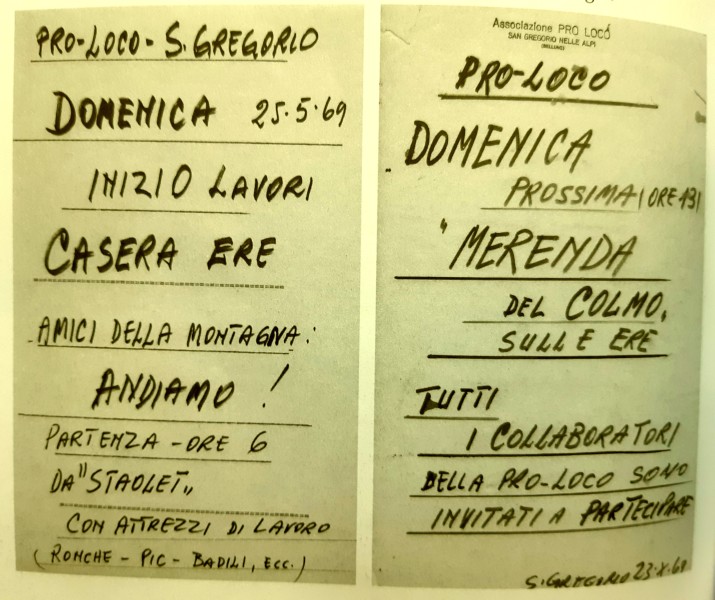 PRO-LOCO - S. GREGORIO
DOMENICA 25·5·69
INIZIO LAVORI
CASERA ERE
AMICI DELLA MONTAGNA:
ANDIAMO!
PARTENZA - ORE 6
DA "STAOLET"
CON ATTREZZI DI LAVORO
(RONCHE - PIC - BADILI, ECC.)
Associazione PRO LOCO
SAN GREGORIO NELLE ALPI
(BELLUNO)
PRO-LOCO
DOMENICA
PROSSIMA (ORE 13)
"MERENDA
DEL COLMO,
SULLE ERE
TUTTI
I COLLABORATORI
DELLA PRO-LOCO SONO
INVITATI A PARTECIPARE
S. GREGORIO 23·X·69